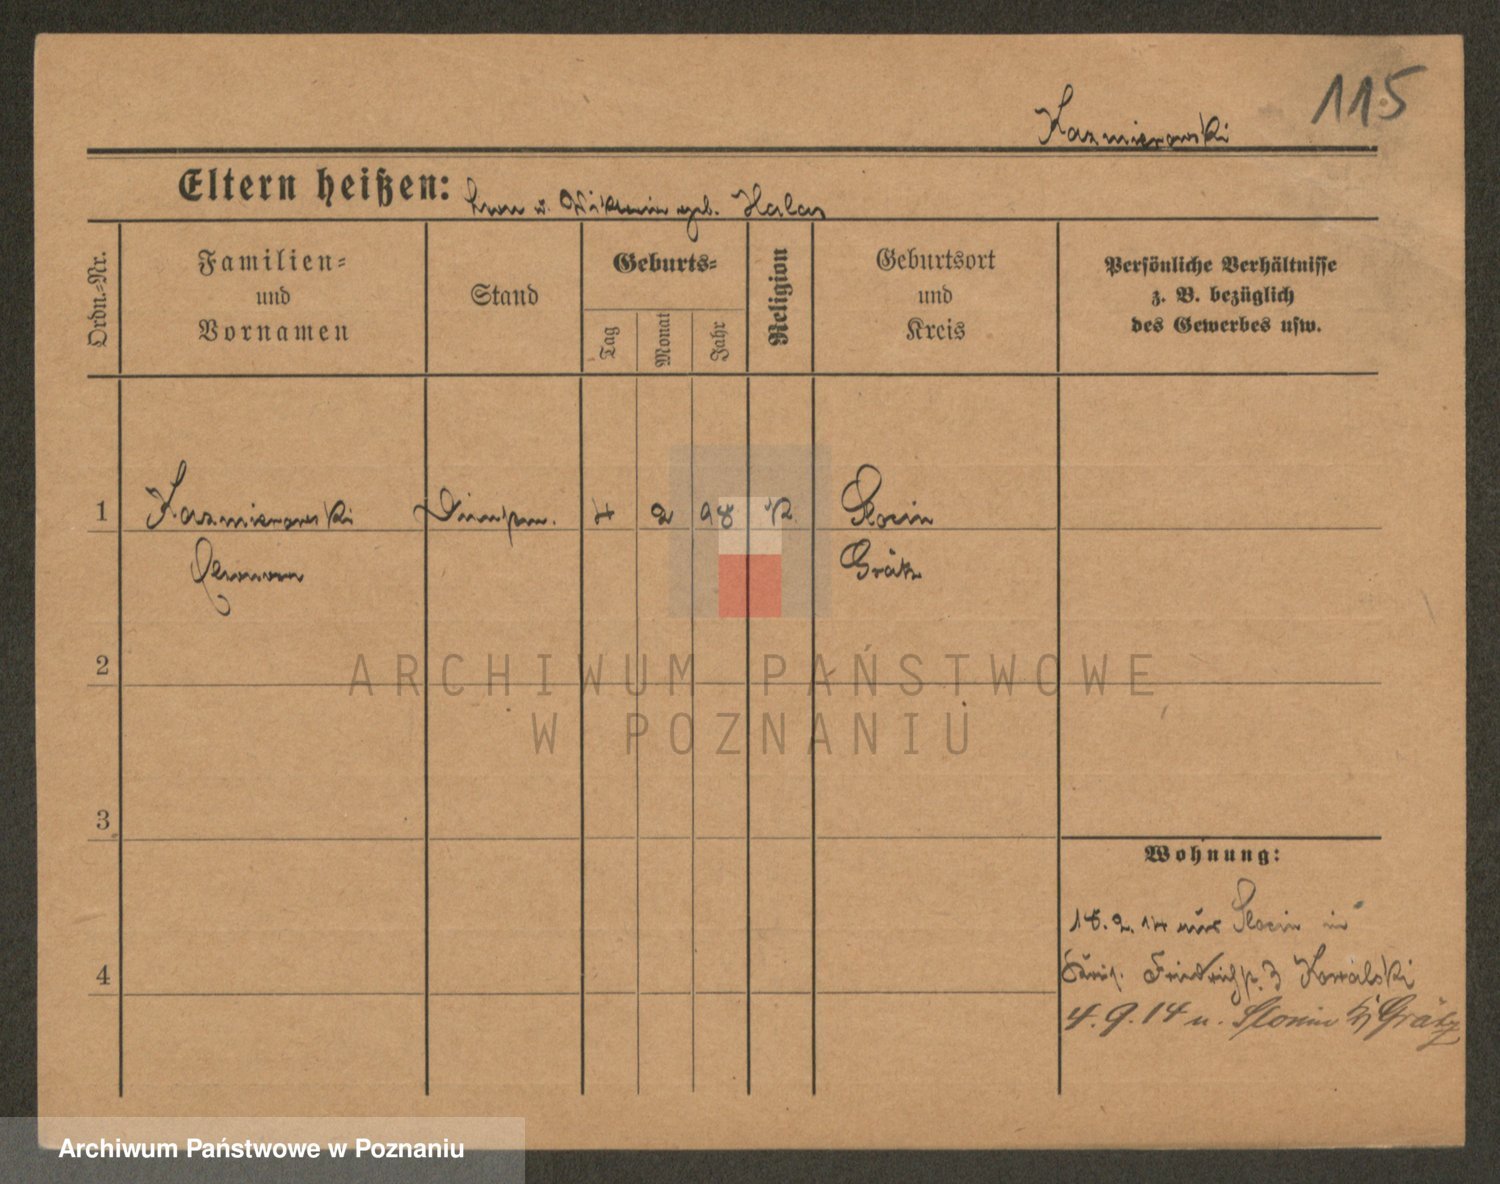 115
Kazmierowski
Eltern heißen: Leon u. Viktoria geb. Halas
Ordn.-Nr.
Familien-
und
Vornamen
Stand
Geburts-
Tag
Monat
Jahr
Religion
Geburtsort
und
Kreis
Persönliche Verhältnisse
z. B. bezüglich
des Gewerbes usw.
1 Kazmierowski 4 2 98 K
Eleonora
Grätz
2
3
4
Wohnung:
18. 2. 14 aus in
Friedrichstr. 3 Kowalski
4. 9. 14 n. Slonin Kr Grätz
ARCHIWUM PAŃSTWOWE
W POZNANIU
Archiwum Państwowe w Poznaniu